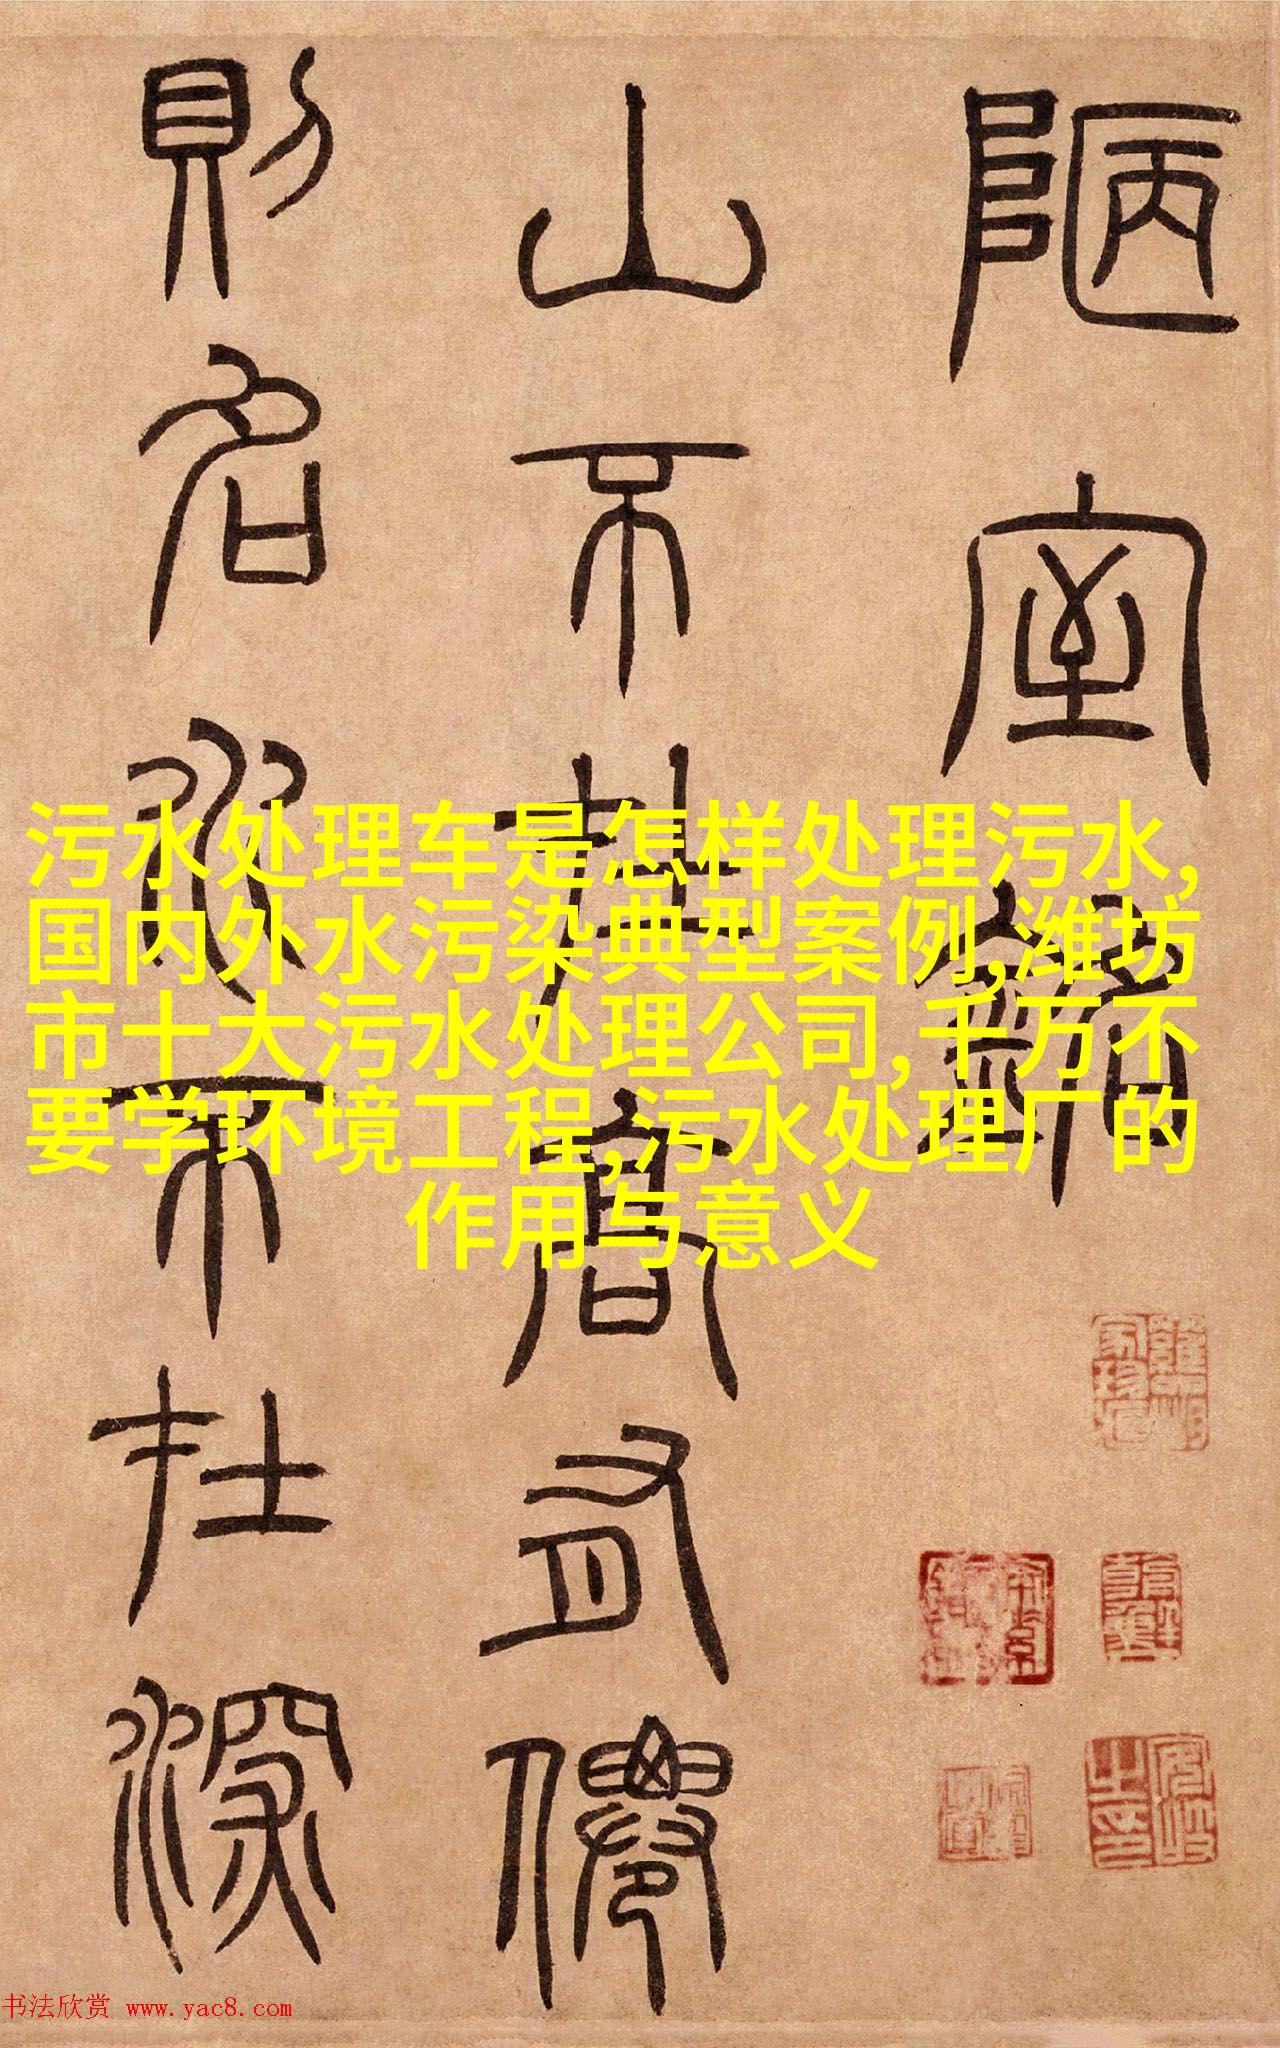 陋室銘
山不在高有僊
則名水不在深
污水处理车是怎样处理污水,
国内外水污染典型案例,潍坊
市十大污水处理公司,千万不
要学环境工程,污水处理厂的
作用与意义
书法欣赏 www.yac8.com